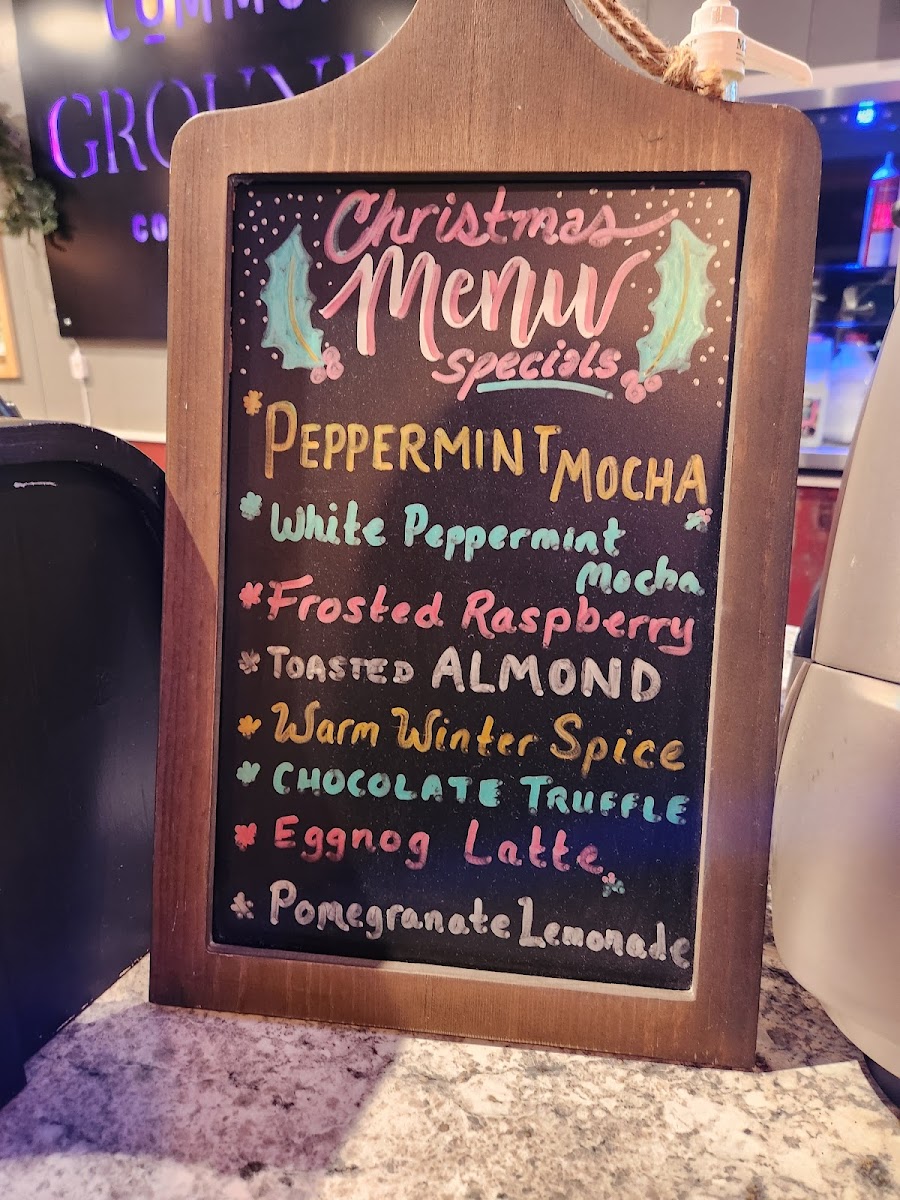 COMMON
GROUND
CO
Christmas
Menu
Specials
* PEPPERMINT MOCHA
* White Peppermint
Mocha
* Frosted Raspberry
* TOASTED ALMOND
* Warm Winter Spice
* CHOCOLATE TRUFFLE
* Eggnog Latte
* Pomegranate Lemonade